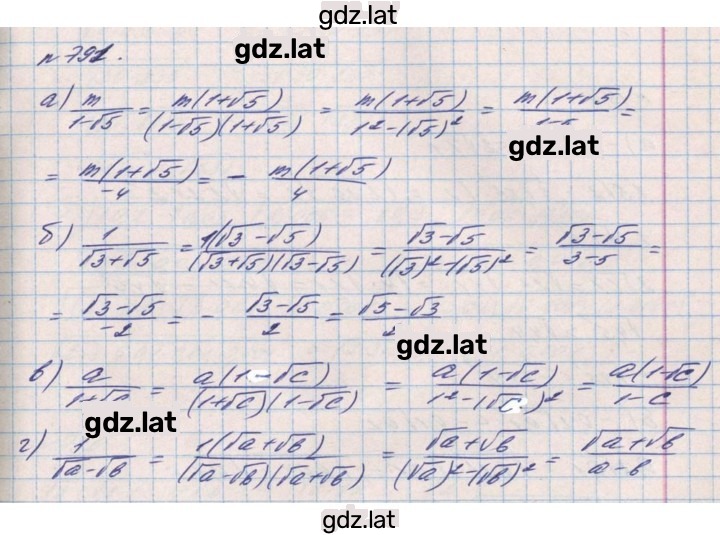 gdz.lat
n 791.
gdz.lat
а) m/(1-√5) = m(1+√5)/((1-√5)(1+√5)) = m(1+√5)/(1²-(√5)²) = m(1+√5)/(1-5) =
gdz.lat
= m(1+√5)/(-4) = - m(1+√5)/4
б) 1/(√3+√5) = 1(√3-√5)/((√3+√5)(√3-√5)) = (√3-√5)/((√3)²-(√5)²) = (√3-√5)/(3-5) =
= (√3-√5)/(-2) = - (√3-√5)/2 = (√5-√3)/2
gdz.lat
в) a/(1+√c) = a(1-√c)/((1+√c)(1-√c)) = a(1-√c)/(1²-(√c)²) = a(1-√c)/(1-c)
gdz.lat
г) 1/(√a-√b) = 1(√a+√b)/((√a-√b)(√a+√b)) = (√a+√b)/((√a)²-(√b)²) = (√a+√b)/(a-b)
gdz.lat